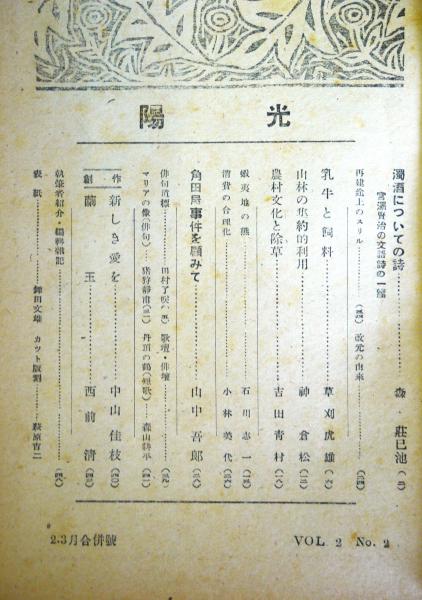 陽光
濁酒についての詩…………森 荘已池(二)
宮澤賢治の文語詩の一篇
再建途上のスリル…………(三四) 改元の由来…………(三四)
乳牛と飼料…………草刈虎雄(六)
山林の集約的利用…………神倉松(三)
農村文化と除草…………吉田青村(六)
蝦夷地の熊…………石川志一
消費の合理化…………小林美代
角田房事件を顧みて…………山中吾郎
俳句道標…………田村了咲 歌壇・俳壇
マリアの像(俳句)…………猪狩静甫 丹頂の鶴(短歌)…………森山耕平
創作
新しき愛を…………中山佳枝
繭玉…………西前清
執筆者紹介・編輯雑記
表紙…………舞田文雄 カット版画…………萩原吉二
2.3月合併號
VOL 2 No. 2